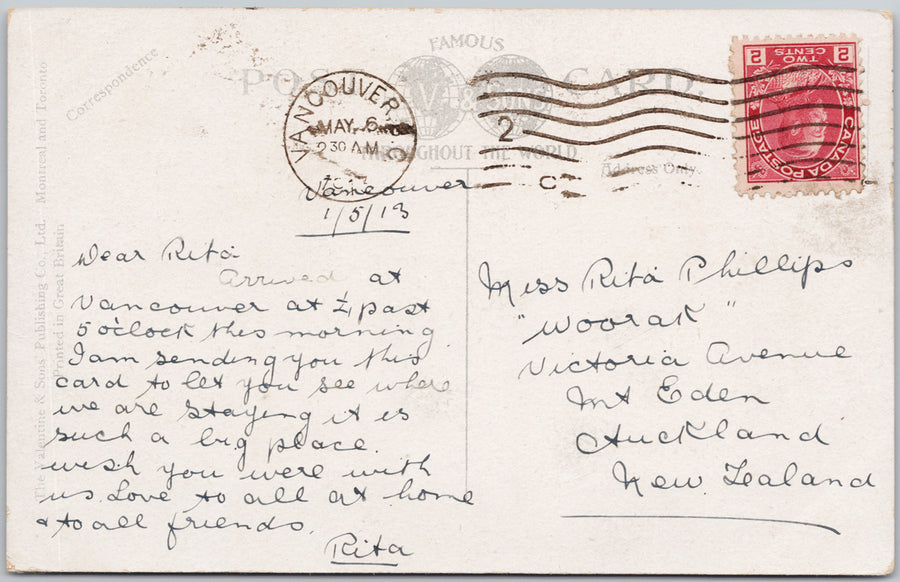 Correspondence
FAMOUS
POST CARD.
V & S
THROUGHOUT THE WORLD
Address Only.
The Valentine & Sons Publishing Co., Ltd. Montreal and Toronto
Printed in Great Britain
VANCOUVER, B.C.
MAY 6
2 30 AM
2
C
2 TWO CENTS 2
CANADA POSTAGE
Vancouver
1/5/13
Dear Rita
Arrived at
Vancouver at ¼ past
5 o'clock this morning
I am sending you this
card to let you see where
we are staying it is
such a big place
wish you were with
us. Love to all at home
& to all friends.
Rita
Miss Rita Phillips
"Woorak"
Victoria Avenue
Mt Eden
Auckland
New Zealand